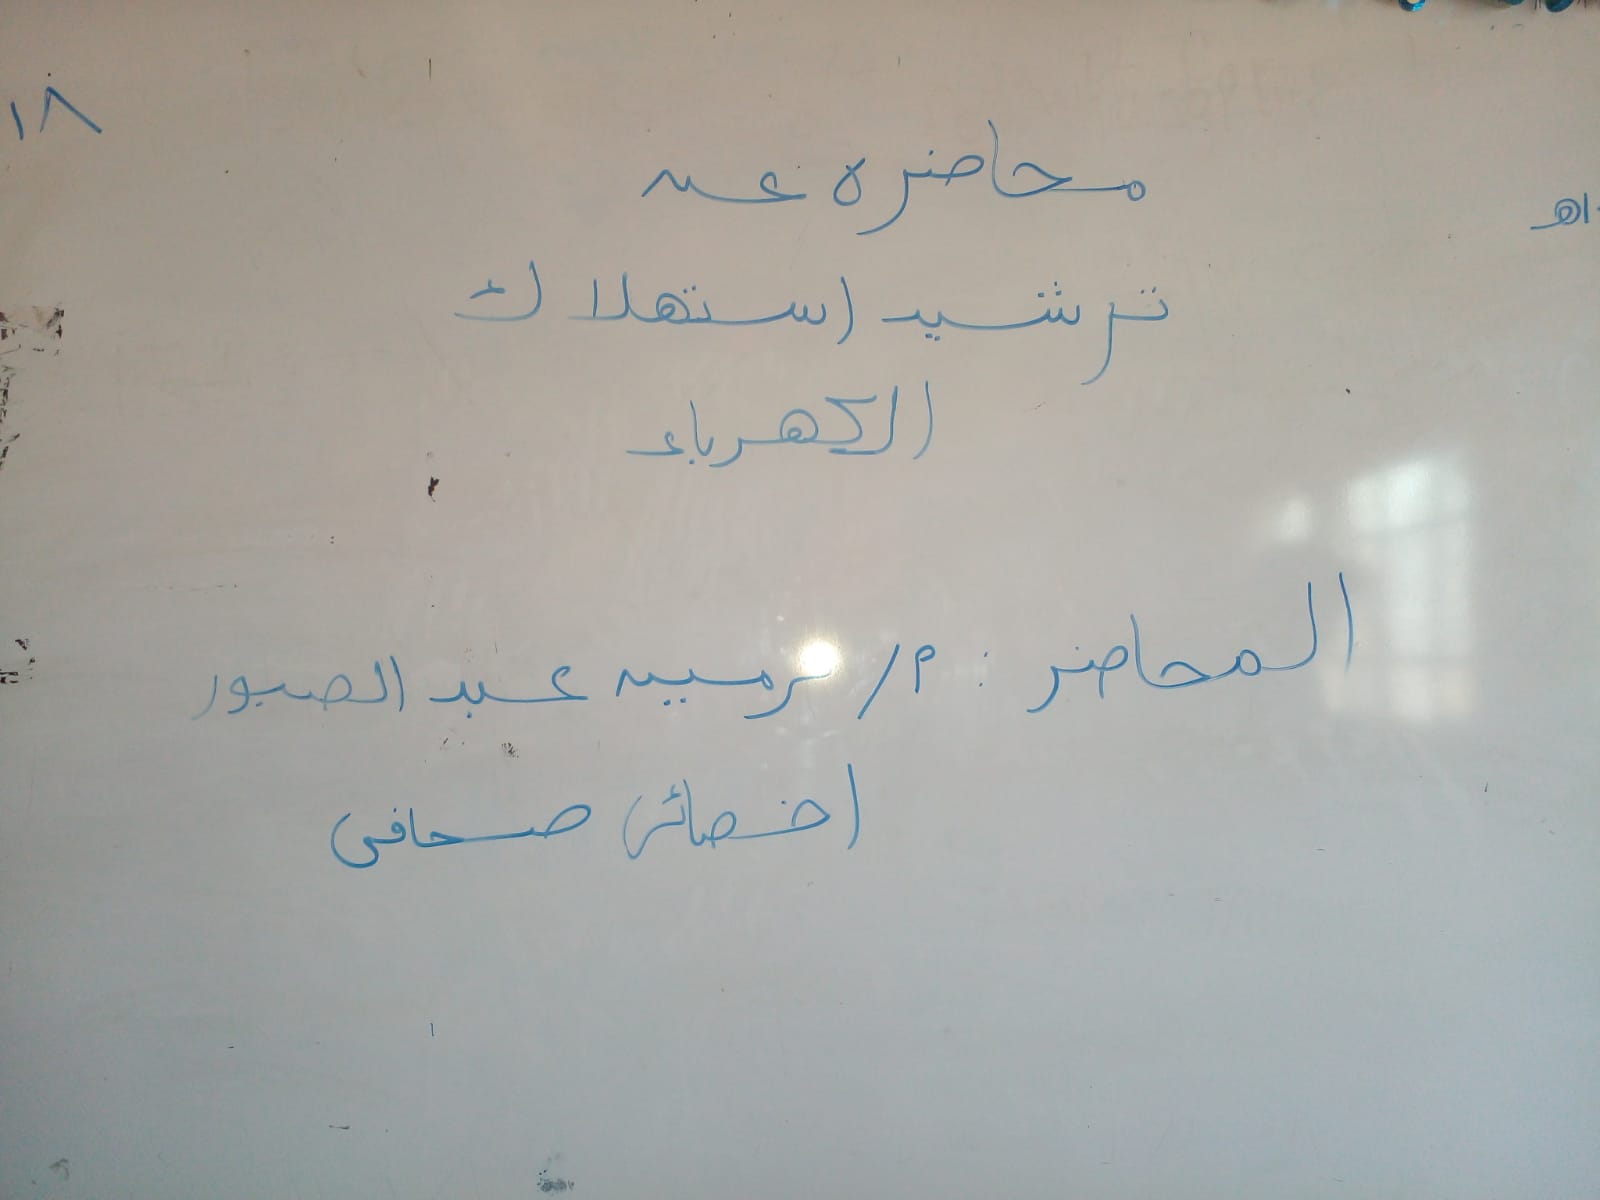 محاضره عن
ترشيد استهلاك
الكهرباء
المحاضر : م/ نرمين عبد الصبور
اخصائى صحافى
١٨